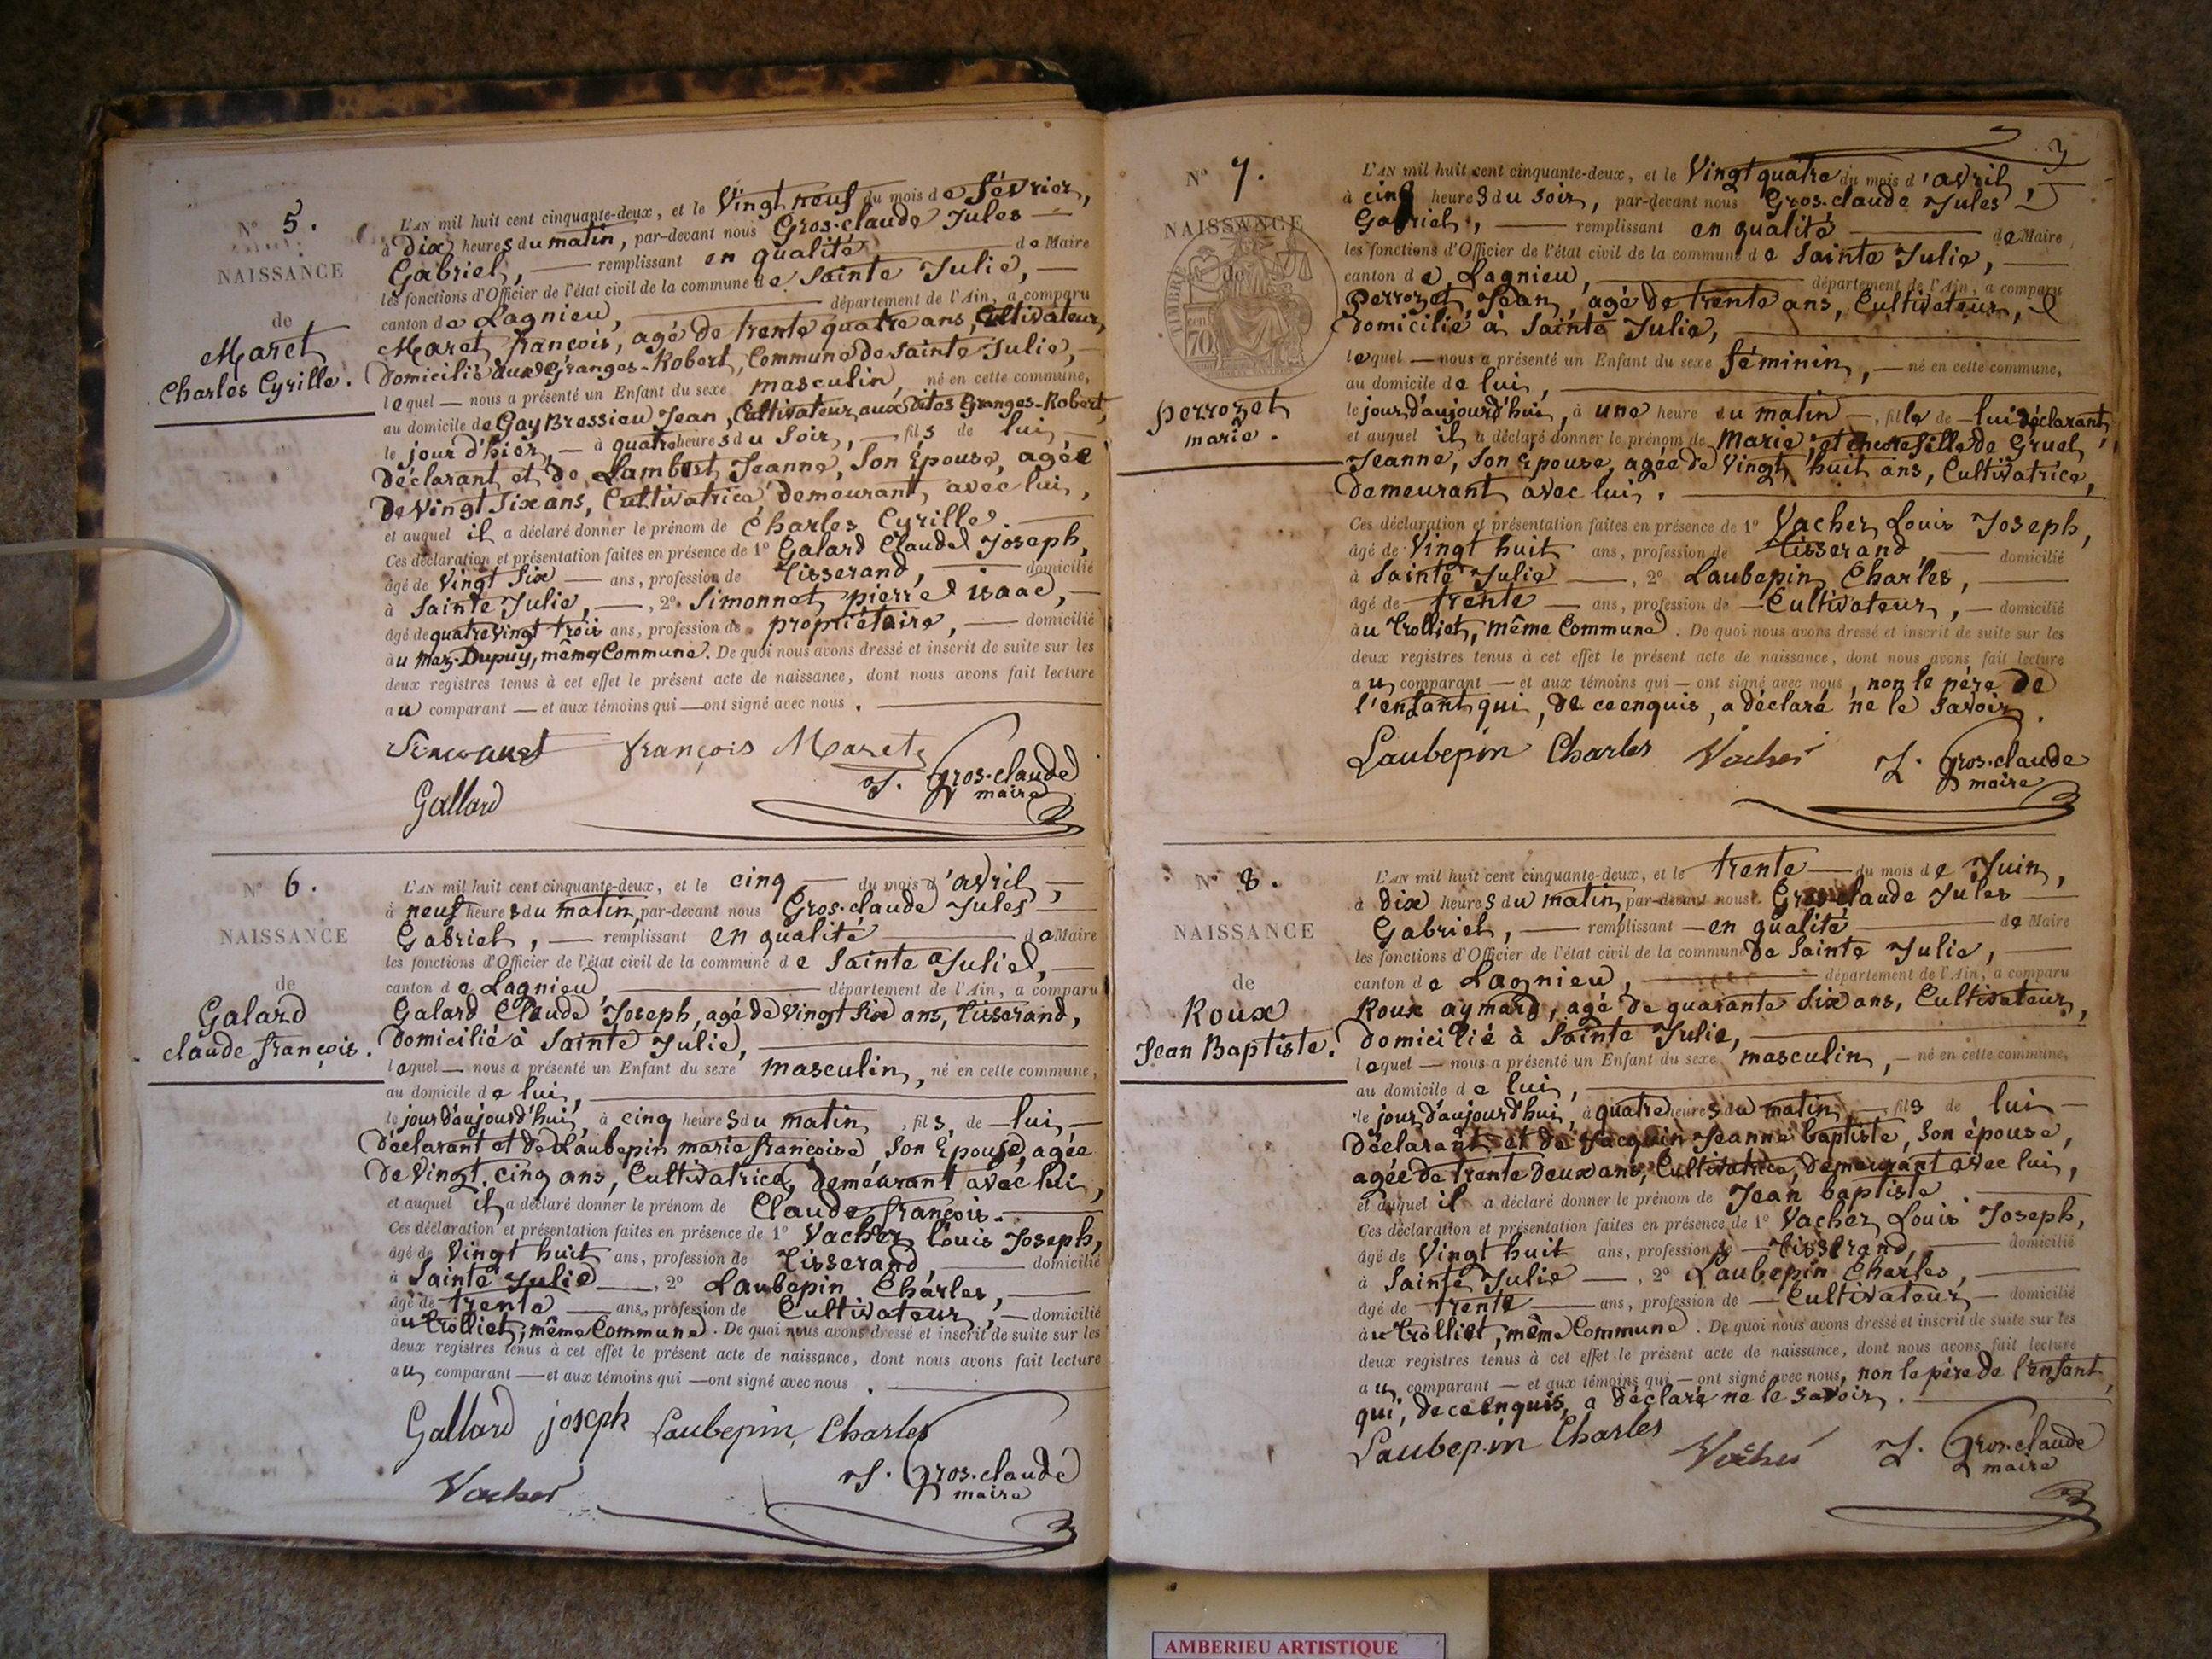 N° 5.
NAISSANCE
de
Maret
Charles Cyrille.
L'AN mil huit cent cinquante-deux, et le Vingt neuf du mois de février,
à dix heures du matin, par-devant nous Gros-claude Jules
Gabriel, remplissant en qualité de Maire
les fonctions d'Officier de l'état civil de la commune de Sainte Julie,
canton de Lagnieu, département de l'Ain, a comparu
Maret françois, agé de trente quatre ans, Cultivateur,
domicilié aux Granges-Robert, Commune de Sainte Julie,
lequel nous a présenté un Enfant du sexe masculin, né en cette commune,
au domicile de Gay Bressieu Jean, Cultivateur aux dites Granges-Robert,
le jour d'hier, à quatre heures du Soir, fils de lui
déclarant et de Lambert Jeanne, Son Epouse, agée
de Vingt Six ans, Cultivatrice, demeurant avec lui,
et auquel il a déclaré donner le prénom de Charles Cyrille.
Ces déclaration et présentation faites en présence de 1° Galard Claude Joseph,
âgé de Vingt Six ans, profession de Tisserand, domicilié
à Sainte Julie, 2° Simonnet pierre isaac,
âgé de quatre vingt trois ans, profession de propriétaire, domicilié
au Maz-Dupuy, même Commune. De quoi nous avons dressé et inscrit de suite sur les
deux registres tenus à cet effet le présent acte de naissance, dont nous avons fait lecture
au comparant et aux témoins qui ont signé avec nous.
Simonnet françois Maret
J. Gros-claude
maire
Gallard
N° 6.
NAISSANCE
de
Galard
claude françois.
L'AN mil huit cent cinquante-deux, et le cinq du mois d'avril,
à neuf heures du matin, par-devant nous Gros-claude Jules
Gabriel, remplissant en qualité de Maire
les fonctions d'Officier de l'état civil de la commune de Sainte Julie,
canton de Lagnieu département de l'Ain, a comparu
Galard Claude Joseph, agé de vingt Six ans, tisserand,
domicilié à Sainte Julie,
lequel nous a présenté un Enfant du sexe masculin, né en cette commune,
au domicile de lui,
le jour d'aujourd'hui, à cinq heures du matin, fils de lui
déclarant et de Laubepin marie françoise, Son Epouse, agée
de Vingt cinq ans, Cultivatrice, demeurant avec lui,
et auquel il a déclaré donner le prénom de Claude françois.
Ces déclaration et présentation faites en présence de 1° Vacher Louis Joseph,
âgé de Vingt huit ans, profession de Tisserand, domicilié
à Sainte Julie, 2° Laubepin Charles,
âgé de trente ans, profession de Cultivateur, domicilié
au trolliet, même Commune. De quoi nous avons dressé et inscrit de suite sur les
deux registres tenus à cet effet le présent acte de naissance, dont nous avons fait lecture
au comparant et aux témoins qui ont signé avec nous.
Gallard joseph Laubepin Charles
Vacher J. Gros-claude
maire
3
N° 7.
NAISSANCE
de
TIMBRE
70
perrozet
marie.
L'AN mil huit cent cinquante-deux, et le Vingt quatre du mois d'avril,
à cinq heures du soir, par-devant nous Gros-claude Jules
Gabriel, remplissant en qualité de Maire
les fonctions d'Officier de l'état civil de la commune de Sainte Julie,
canton de Lagnieu, département de l'Ain, a comparu
perrozet, Jean, agé de trente ans, Cultivateur,
domicilié à Sainte Julie,
lequel nous a présenté un Enfant du sexe féminin, né en cette commune,
au domicile de lui,
le jour d'aujourd'hui, à une heure du matin, fille de lui déclarant,
et auquel il a déclaré donner le prénom de Marie, et encore fille de Gruel
Jeanne, Son épouse, agée de Vingt huit ans, Cultivatrice,
demeurant avec lui.
Ces déclaration et présentation faites en présence de 1° Vacher Louis Joseph,
âgé de Vingt huit ans, profession de tisserand, domicilié
à Sainte Julie, 2° Laubepin Charles,
âgé de trente ans, profession de Cultivateur, domicilié
au trolliet, même Commune. De quoi nous avons dressé et inscrit de suite sur les
deux registres tenus à cet effet le présent acte de naissance, dont nous avons fait lecture
au comparant et aux témoins qui ont signé avec nous, non le père de
l'enfant qui, de ce enquis, a déclaré ne le savoir.
Laubepin Charles Vacher J. Gros-claude
maire
N° 8.
NAISSANCE
de
Roux
Jean Baptiste.
L'AN mil huit cent cinquante-deux, et le trente du mois de Juin,
à dix heures du matin, par-devant nous Gros-claude Jules
Gabriel, remplissant en qualité de Maire
les fonctions d'Officier de l'état civil de la commune de Sainte Julie,
canton de Lagnieu, département de l'Ain, a comparu
Roux aymard, agé de quarante Six ans, Cultivateur,
domicilié à Sainte Julie,
lequel nous a présenté un Enfant du sexe masculin, né en cette commune,
au domicile de lui,
le jour d'aujourd'hui, à quatre heures du matin, fils de lui
déclarant et de Jacquin Jeanne baptiste, Son épouse,
agée de trente deux ans, Cultivatrice, demeurant avec lui,
et auquel il a déclaré donner le prénom de Jean baptiste
Ces déclaration et présentation faites en présence de 1° Vacher Louis Joseph,
âgé de Vingt huit ans, profession de Tisserand, domicilié
à Sainte Julie, 2° Laubepin Charles,
âgé de trente ans, profession de Cultivateur, domicilié
au trolliet, même Commune. De quoi nous avons dressé et inscrit de suite sur les
deux registres tenus à cet effet le présent acte de naissance, dont nous avons fait lecture
au comparant et aux témoins qui ont signé avec nous, non le père de l'enfant
qui, de ce enquis, a déclaré ne le savoir.
Laubepin Charles Vacher J. Gros-claude
maire
AMBERIEU ARTISTIQUE